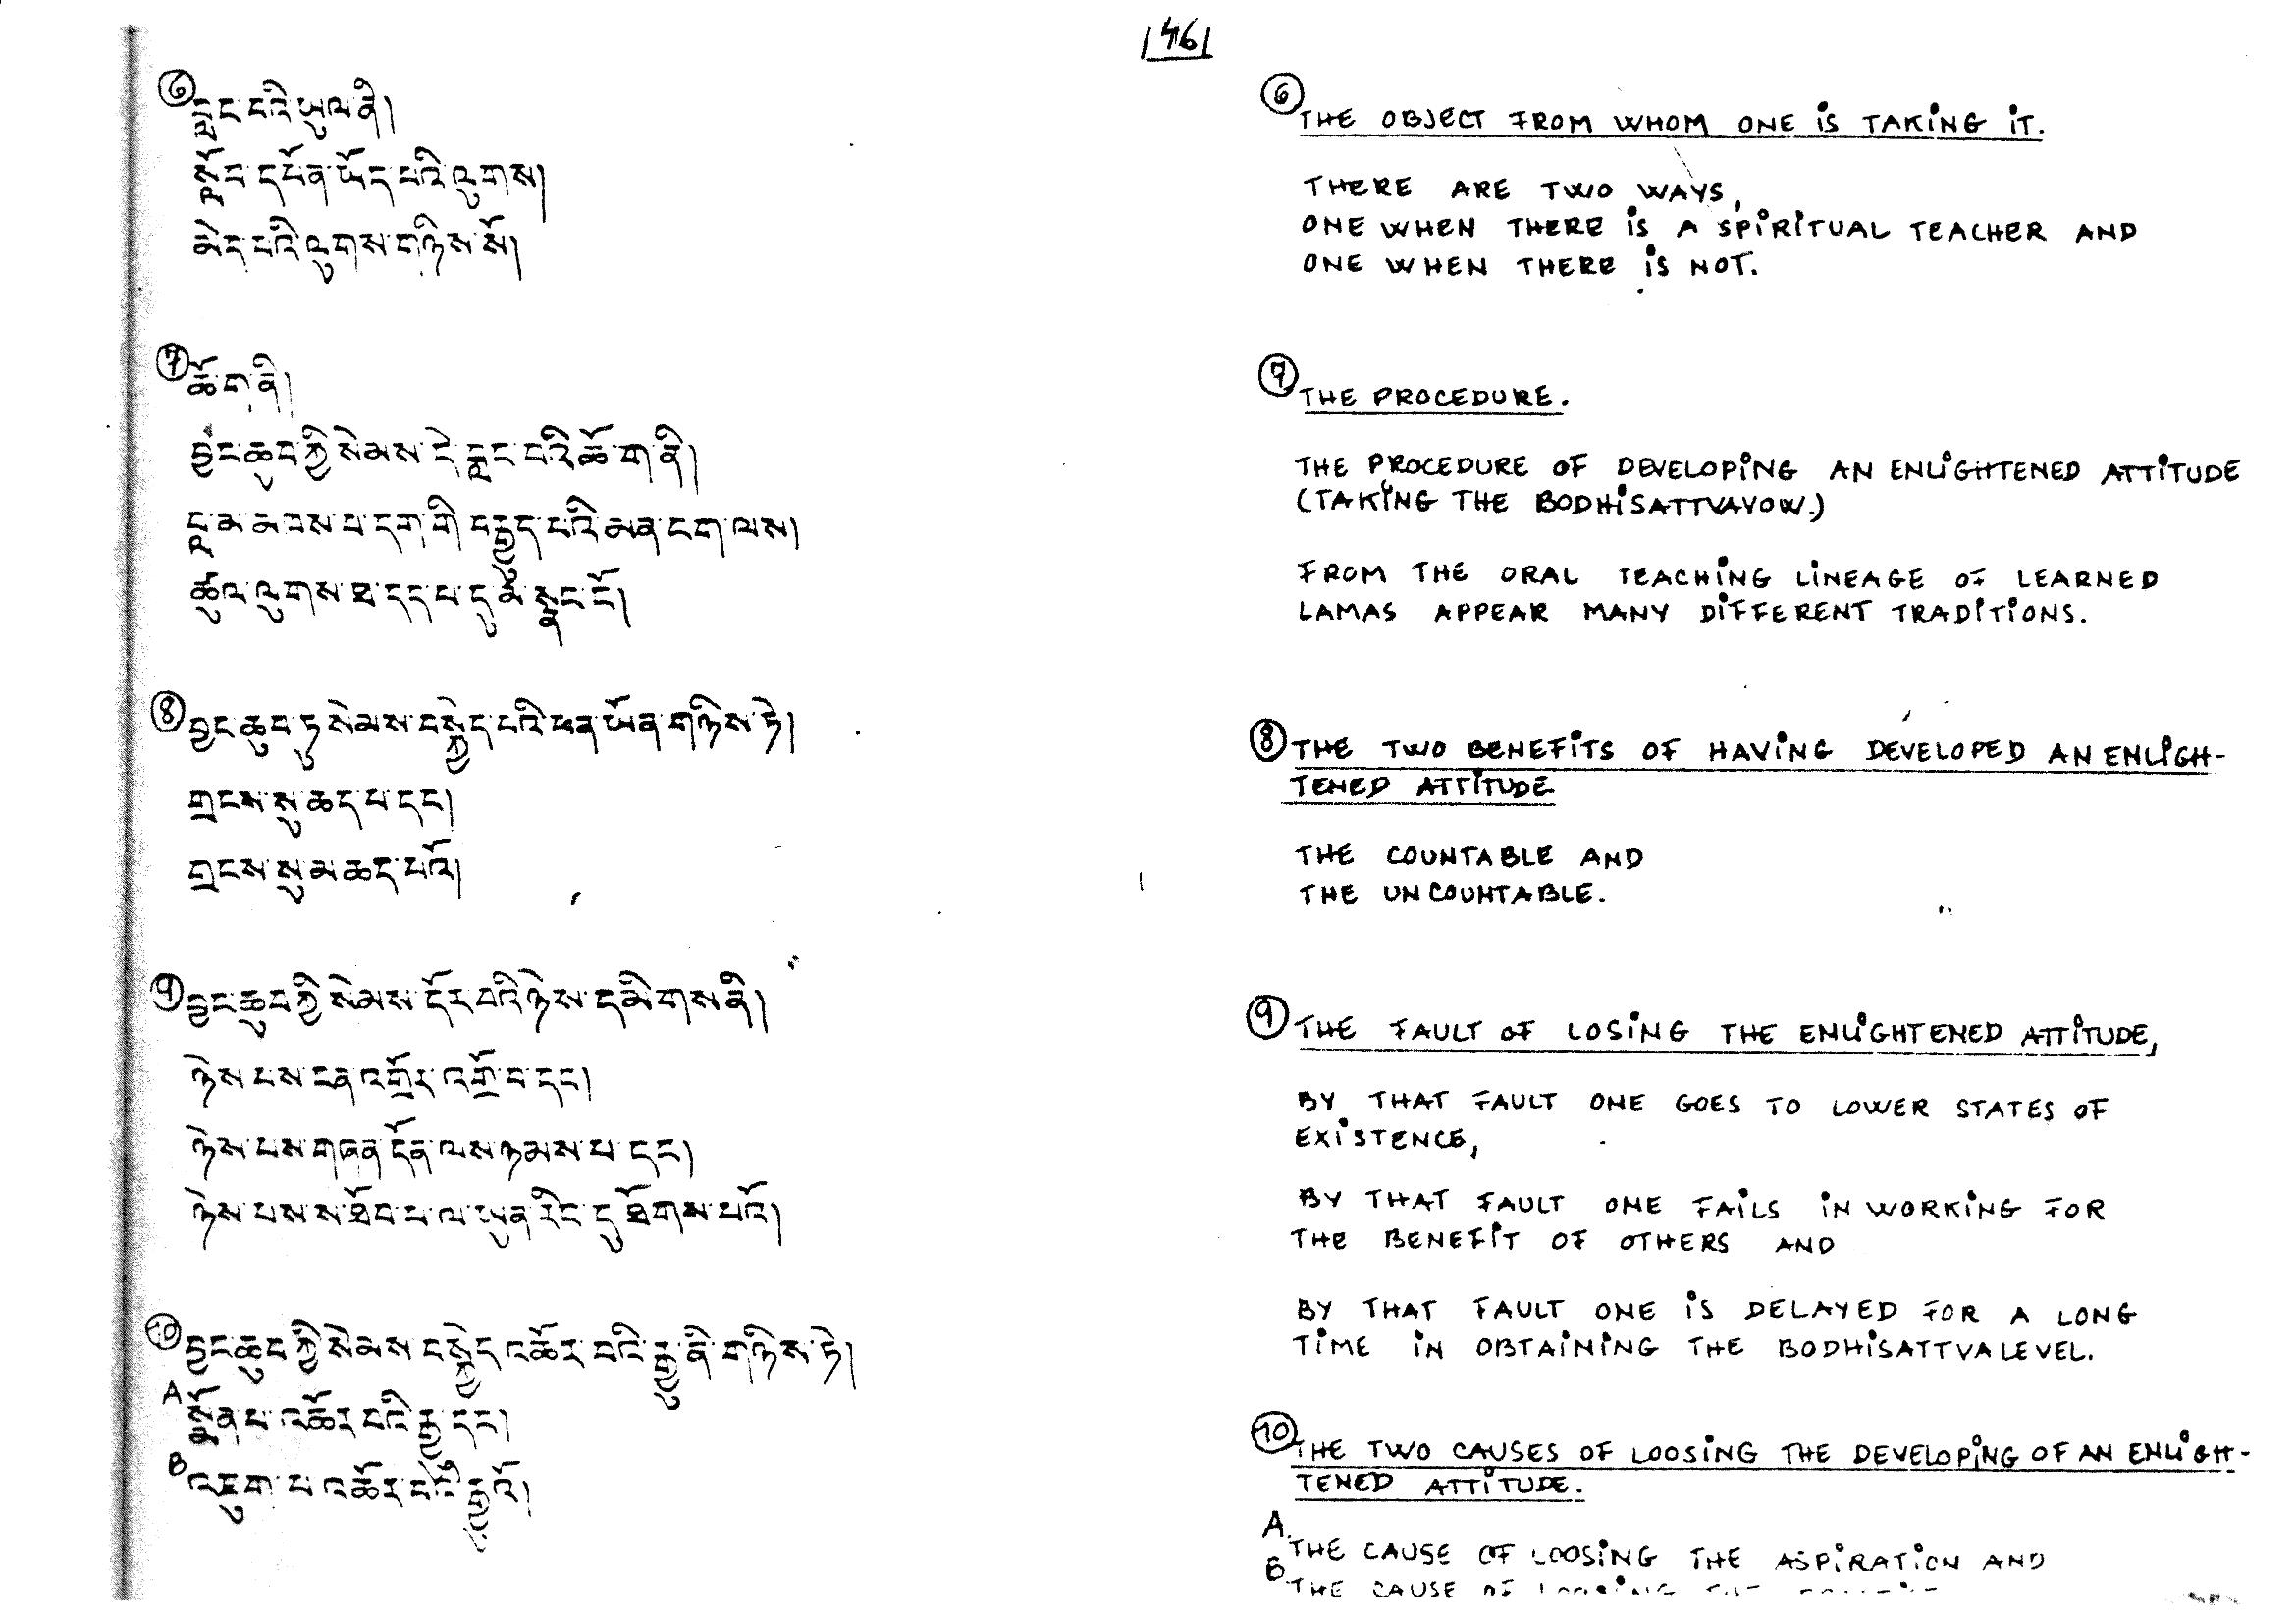 146
⑥
བླང་བའི་ཡུལ་ནི།
སློབ་དཔོན་ཡོད་པའི་ལུགས།
མེད་པའི་ལུགས་གཉིས་སོ།
⑦
ཆོ་ག་ནི།
བྱང་ཆུབ་ཀྱི་སེམས་དེ་བླང་བའི་ཆོ་ག་ནི།
བླ་མ་མཁས་པ་དག་གི་བརྒྱུད་པའི་མན་ངག་ལས།
ཚུལ་ལུགས་ཐ་དད་པ་དུ་མ་སྣང་ངོ།
⑧
བྱང་ཆུབ་ཏུ་སེམས་བསྐྱེད་པའི་ཕན་ཡོན་གཉིས་ཏེ།
གྲངས་སུ་ཆད་པ་དང།
གྲངས་སུ་མ་ཆད་པའོ།
⑨
བྱང་ཆུབ་ཀྱི་སེམས་དོར་བའི་ཉེས་དམིགས་ནི།
ཉེས་པས་ངན་འགྲོར་འགྲོ་བ་དང།
ཉེས་པས་གཞན་དོན་ལས་ཉམས་པ་དང།
ཉེས་པས་ས་ཐོབ་པ་ལ་ཡུན་རིང་དུ་ཐོགས་པའོ།
⑩
བྱང་ཆུབ་ཀྱི་སེམས་བསྐྱེད་འཆོར་བའི་རྒྱུ་ནི་གཉིས་ཏེ།
A སྨོན་པ་འཆོར་བའི་རྒྱུ་དང།
B འཇུག་པ་འཆོར་བའི་རྒྱུའོ།
⑥
THE OBJECT FROM WHOM ONE IS TAKING IT.
THERE ARE TWO WAYS,
ONE WHEN THERE IS A SPIRITUAL TEACHER AND
ONE WHEN THERE IS NOT.
⑦
THE PROCEDURE.
THE PROCEDURE OF DEVELOPING AN ENLIGHTENED ATTITUDE
(TAKING THE BODHISATTVAVOW.)
FROM THE ORAL TEACHING LINEAGE OF LEARNED
LAMAS APPEAR MANY DIFFERENT TRADITIONS.
⑧ THE TWO BENEFITS OF HAVING DEVELOPED AN ENLIGH-
TENED ATTITUDE
THE COUNTABLE AND
THE UNCOUNTABLE.
⑨ THE FAULT OF LOSING THE ENLIGHTENED ATTITUDE,
BY THAT FAULT ONE GOES TO LOWER STATES OF
EXISTENCE,
BY THAT FAULT ONE FAILS IN WORKING FOR
THE BENEFIT OF OTHERS AND
BY THAT FAULT ONE IS DELAYED FOR A LONG
TIME IN OBTAINING THE BODHISATTVALEVEL.
⑩ THE TWO CAUSES OF LOOSING THE DEVELOPING OF AN ENLIGH-
TENED ATTITUDE.
A. THE CAUSE OF LOOSING THE ASPIRATION AND
B. THE CAUSE OF LOOSING THE